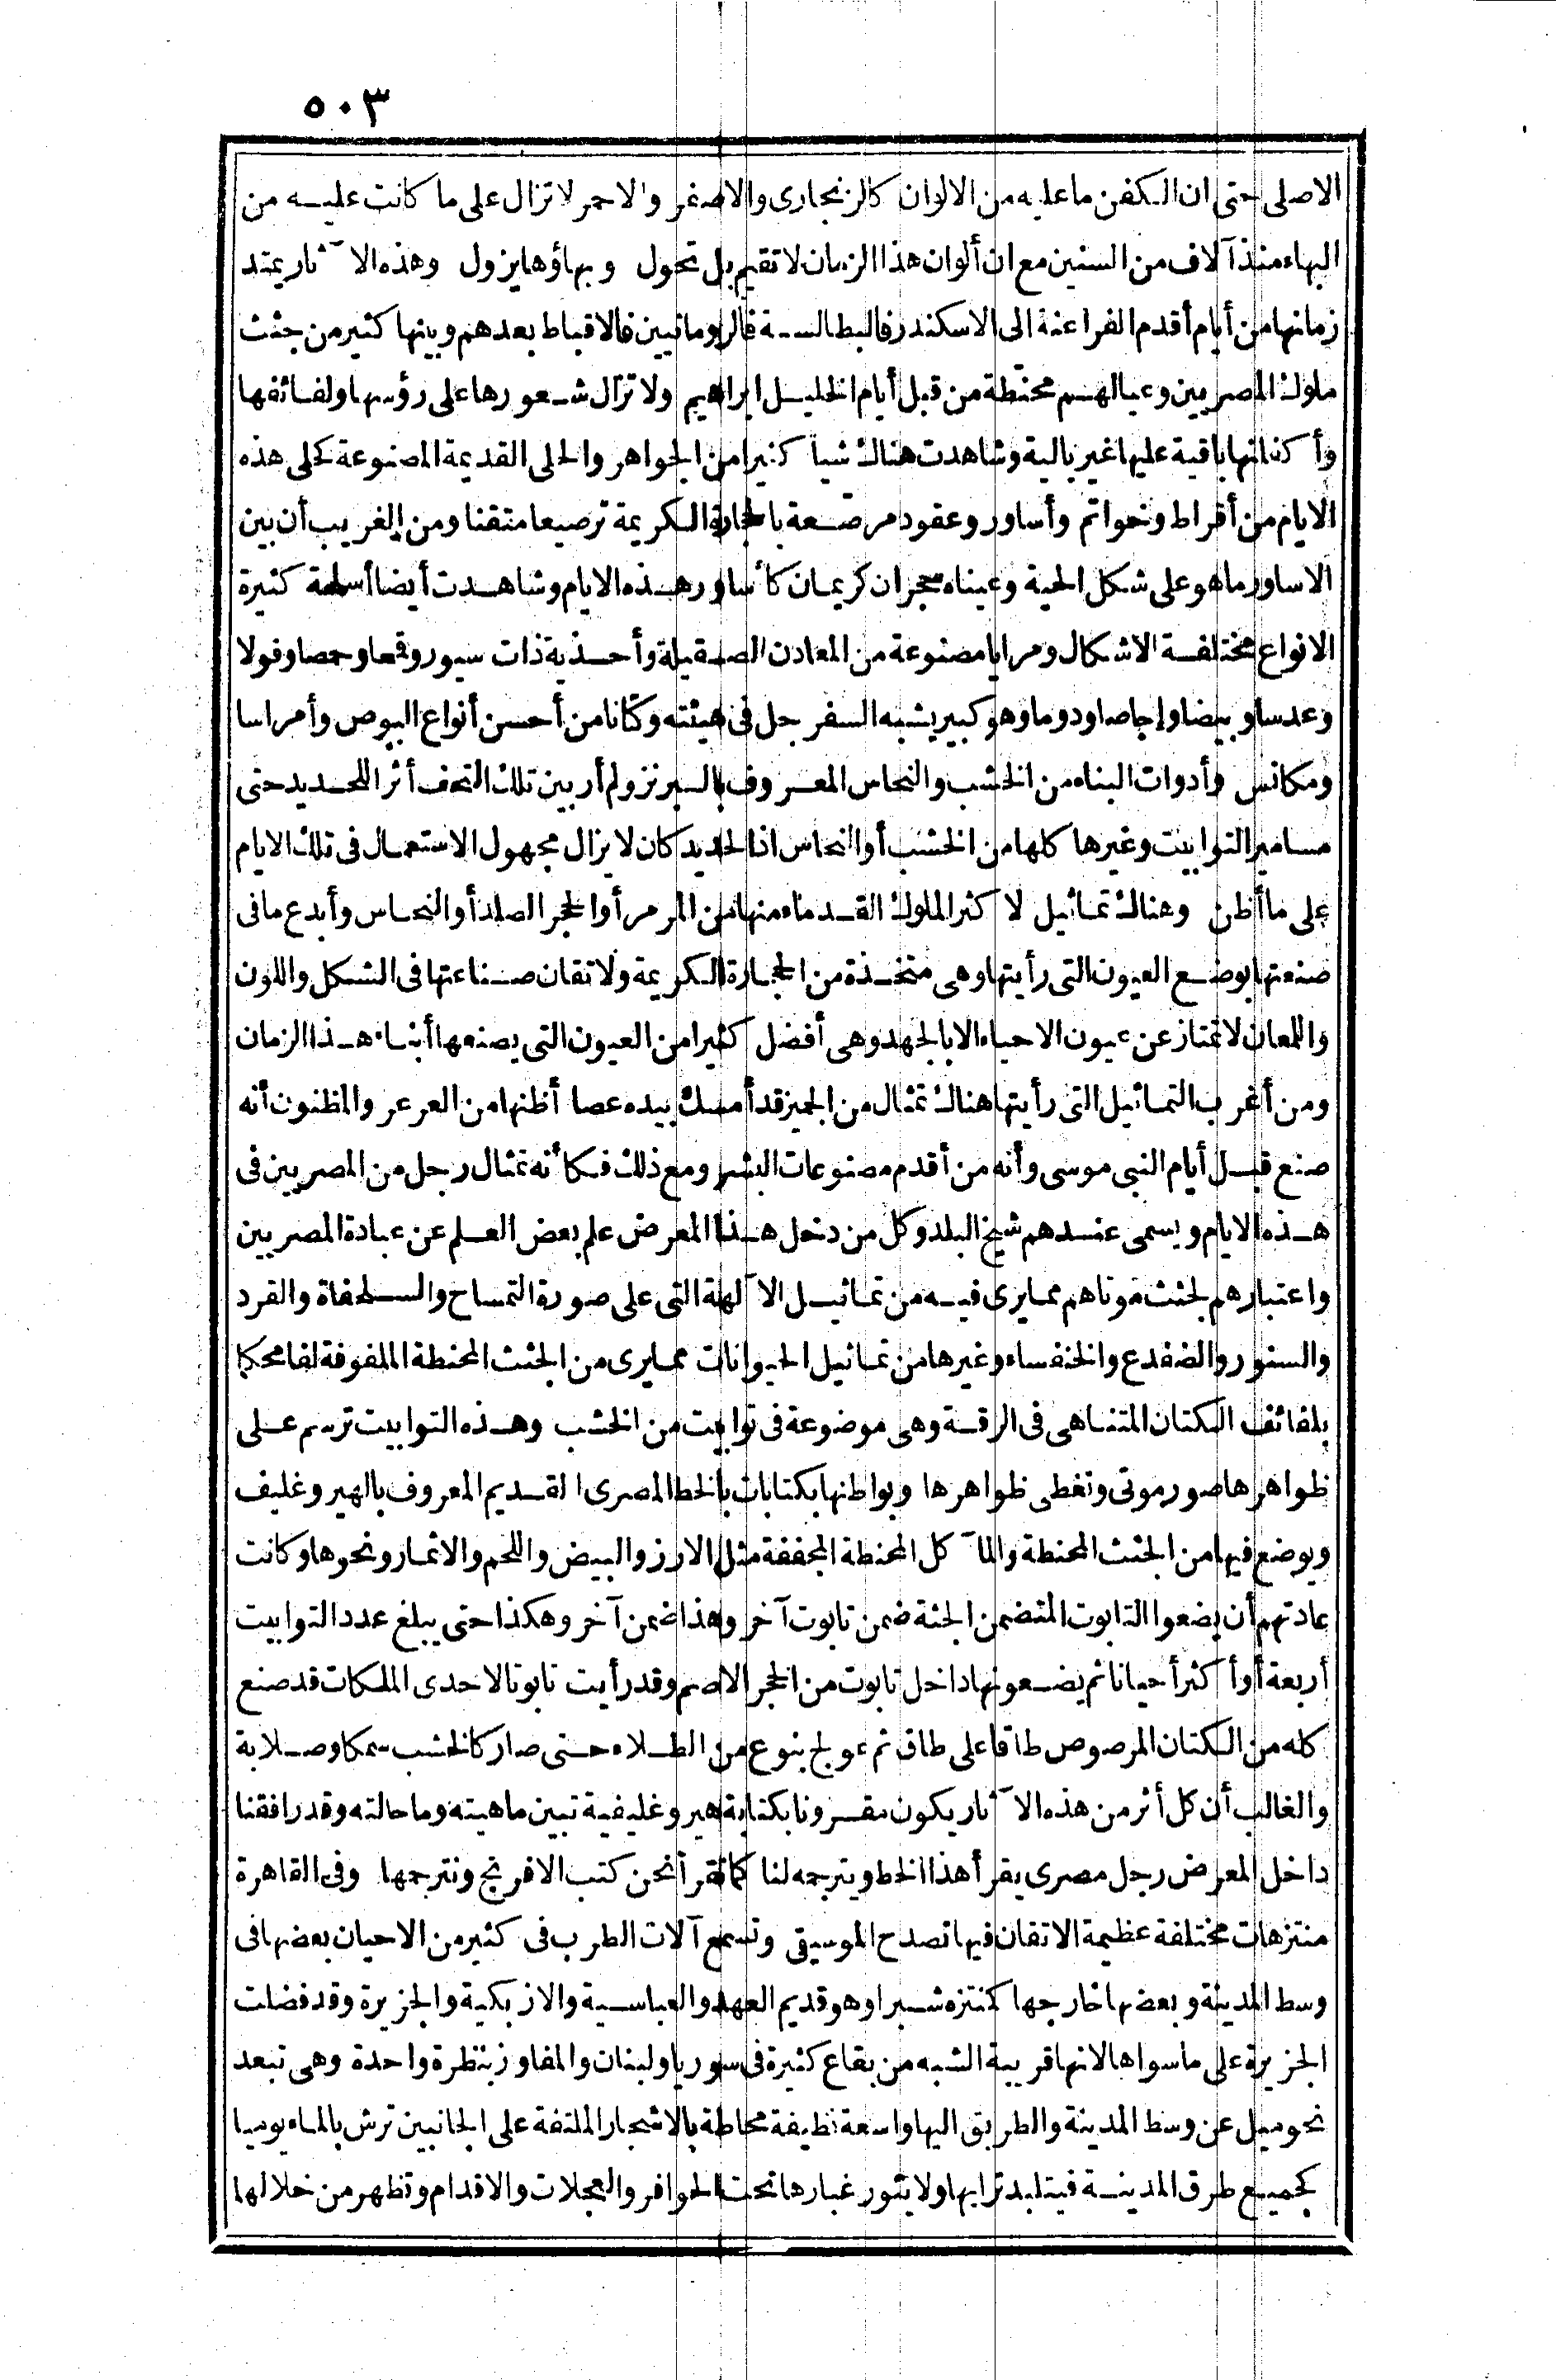 ٥٠٣
الاصلى حتى ان الكفن ما عليه من الالوان كالزنجارى والاصفر والاحمر لا تزال على ما كانت عليه من
البهاء منذ آلاف من السنين مع ان ألوان هذا الزمان لا تقيم بل تحول وبهاؤها يزول وهذه الآثار يمتد
زمانها من أيام أقدم الفراعنة الى الاسكندر فالبطالسة فالرومانيين فالاقباط بعدهم وبينها كثير من جثث
ملوك المصريين وعيالهم محنطة من قبل أيام الخليل ابراهيم ولا تزال شعورها على رؤسها ولفائفها
وأكفانها باقية عليها غير بالية وشاهدت هناك شيأ كثيرا من الجواهر والحلى القديمة المصنوعة كحلى هذه
الايام من أقراط وخواتم وأساور وعقود مرصعة بالحجارة الكريمة ترصيعا متقنا ومن الغريب أن بين
الاساور ما هو على شكل الحية وعيناه حجران كريمان كأساور هذه الايام وشاهدت أيضا أسلحة كثيرة
الانواع مختلفة الاشكال ومرايا مصنوعة من المعادن الصقيلة وأحذية ذات سيور وقمحا وحمصا وفولا
وعدسا وبيضا وإجاصا ودوما وهو كبير يشبه السفرجل فى هيئته وكتانا من أحسن أنواع البوص وأمراسا
ومكانس وأدوات البناء من الخشب والنحاس المعروف بالبرنز ولم أر بين تلك التحف أثرا للحديد حتى
مسامير التوابيت وغيرها كلها من الخشب أو النحاس اذ الحديد كان لا يزال مجهول الاستعمال فى تلك الايام
على ما أظن وهناك تماثيل لا كثر الملوك القدماء منها من المرمر أو الحجر الصلد أو النحاس وأبدع ما فى
صنعتها بوضع العيون التى رأيتها وهى متخذة من الحجارة الكريمة ولاتقان صناعتها فى الشكل واللون
واللمعان لا تمتاز عن عيون الاحياء الا بالجهد وهى أفضل كثيرا من العيون التى يصنعها أبناء هذا الزمان
ومن أغرب التماثيل التى رأيتها هناك تمثال من الجميز قد أمسك بيده عصا أظنها من العرعر والمظنون أنه
صنع قبل أيام النبى موسى وأنه من أقدم مصنوعات البشر ومع ذلك فكأنه تمثال رجل من المصريين فى
هذه الايام ويسمى عندهم شيخ البلد وكل من دخل هذا المعرض علم بعض العلم عن عبادة المصريين
واعتبارهم لجثث موتاهم مما يرى فيه من تماثيل الآلهة التى على صورة التمساح والسلحفاة والقرد
والسنور والضفدع والخنفساء وغيرها من تماثيل الحيوانات مما يرى من الجثث المحنطة الملفوفة لفا محكما
بلفائف الكتان المتناهى فى الرقة وهى موضوعة فى توابيت من الخشب وهذه التوابيت ترسم على
ظواهرها صور موتى وتغطى ظواهرها وبواطنها بكتابات بالخط المصرى القديم المعروف بالهيروغليف
ويوضع فيها من الجثث المحنطة والمآكل المحنطة المجففة مثل الارز والبيض واللحم والاثمار ونحوها وكانت
عادتهم أن يضعوا التابوت المتضمن الجثة ضمن تابوت آخر وهذا ضمن آخر وهكذا حتى يبلغ عدد التوابيت
أربعة أو أكثر أحيانا ثم يضعونها داخل تابوت من الحجر الاصم وقد رأيت تابوتا لاحدى الملكات قد صنع
كله من الكتان المرصوص طاقا على طاق ثم عولج بنوع من الطلاء حتى صار كالخشب سمكا وصلابة
والغالب أن كل أثر من هذه الآثار يكون مقرونا بكتابة هيروغليفية تبين ماهيته وما حالته وقد رافقنا
داخل المعرض رجل مصرى يقرأ هذا الخط ويترجمه لنا كما نقرأ نحن كتب الافرنج ونترجمها وفى القاهرة
منتزهات مختلفة عظيمة الاتقان فيها تصدح الموسيقى وتسمع آلات الطرب فى كثير من الاحيان بعضها فى
وسط المدينة وبعضها خارجها كمنتزه شبرا وهو قديم العهد والعباسية والازبكية والجزيرة وقد فضلت
الجزيرة على ما سواها لانها قريبة الشبه من بقاع كثيرة فى سوريا ولبنان والمفاوز بنظرة واحدة وهى تبعد
نحو ميل عن وسط المدينة والطريق اليها واسعة نظيفة محاطة بالاشجار الملتفة على الجانبين ترش بالماء يوميا
كجميع طرق المدينة فيتلبد ترابها ولا يثور غبارها تحت الحوافر والعجلات والاقدام وتظهر من خلالها